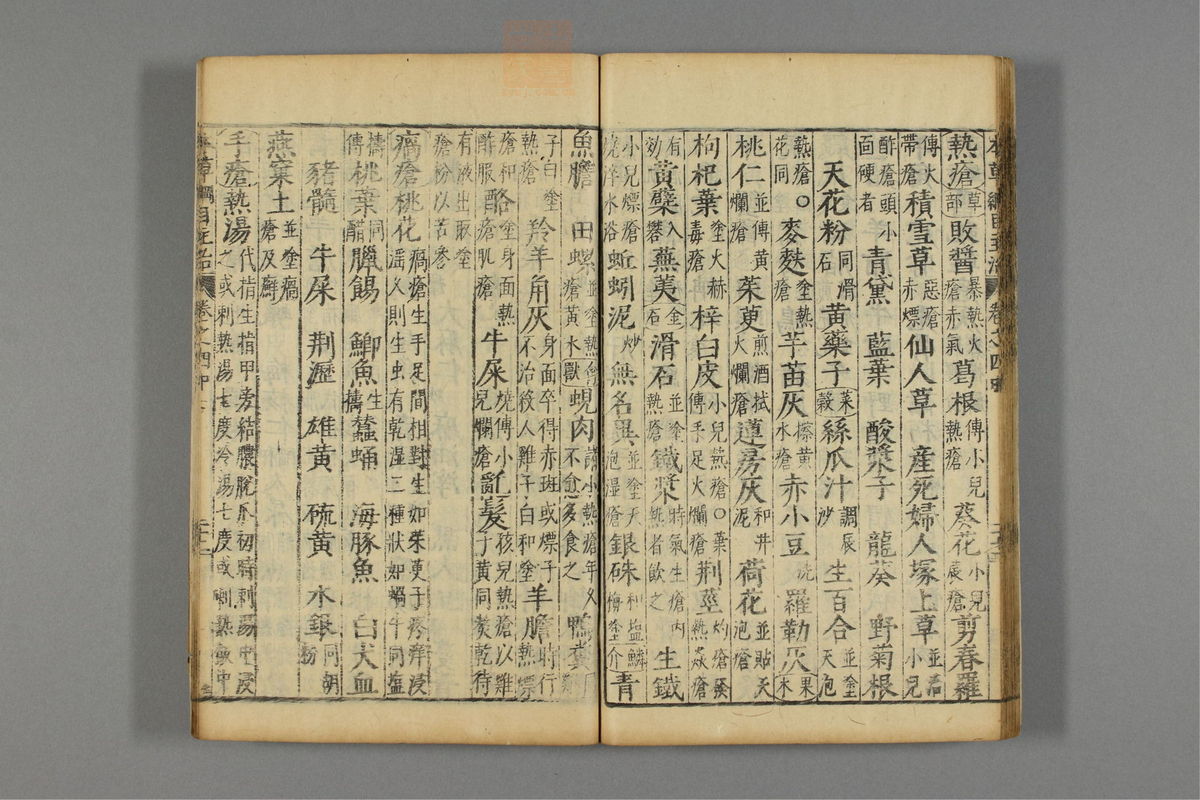 本草綱目主治 卷之四
熱瘡 草部 敗醬 暴熱火瘡赤氣 葛根 傅小兒熱瘡 葵花 小兒蓐瘡 剪春羅
傅火帶瘡 積雪草 惡瘡赤熛 仙人草 產死婦人塚上草 並小兒
酢瘡頭小面硬者 青黛 藍葉 酸漿子 龍葵 野菊根
天花粉 同滑石 黃藥子 菜穀 絲瓜汁 調辰沙 生百合 並塗天泡
熱瘡 花同 麥麩 塗熱瘡 芋苗灰 擦黃水瘡 赤小豆 洗 羅勒灰 果木
桃仁 並傅黃爛瘡 茱萸 煎酒拭火爛瘡 蓮房灰 和井泥 荷花 並貼天泡瘡
枸杞葉 塗火赫毒瘡 梓白皮 小兒熱瘡○葉傅手足火爛瘡 荆莖 灼瘡發熱焱瘡
有效 黃蘗 入礬 蕪荑 金石 滑石 並塗熱瘡 鐵漿 時氣生瘡內熱者飲之 生鐵
小兒熛瘡燒淬水浴 蚯蚓泥 炒 無名異 並塗天泡濕瘡 銀硃 和塩梅塗 鱗介 青
魚膽 田螺 並塗熱瘡黃水 禽獸 蜆肉 諸小熱瘡年久不愈多食之 鴨糞
子白熱瘡 羚羊角灰 身面卒得赤斑或熛子不治殺人雞子白和塗 羊膽 時行熱熛
瘡和酢服 酪 塗身面熱瘡肌瘡 牛屎 燒傅小兒爛瘡 亂髮 孩兒熱瘡以雞子黃同熬乾待
有液出取塗瘡粉以苦參
瘑瘡 桃花 瘑瘡生手足間相對生如茱萸子疼痒浸淫久則生虫有乾湿二種狀如蝸牛同塩
擣傅 桃葉 同醋 臘餳 鯽魚 生擣 蠶蛹 海豚魚 白犬血
豬髓 牛屎 荆瀝 雄黃 硫黃 水銀 同胡粉
燕窠土 並塗瘑瘡及癬
手瘡 熱湯 代指生指甲旁結膿脫爪初時刺湯中浸之或刺熱湯七度冷湯七度或刺熱飯中
本草綱目主治 卷之四